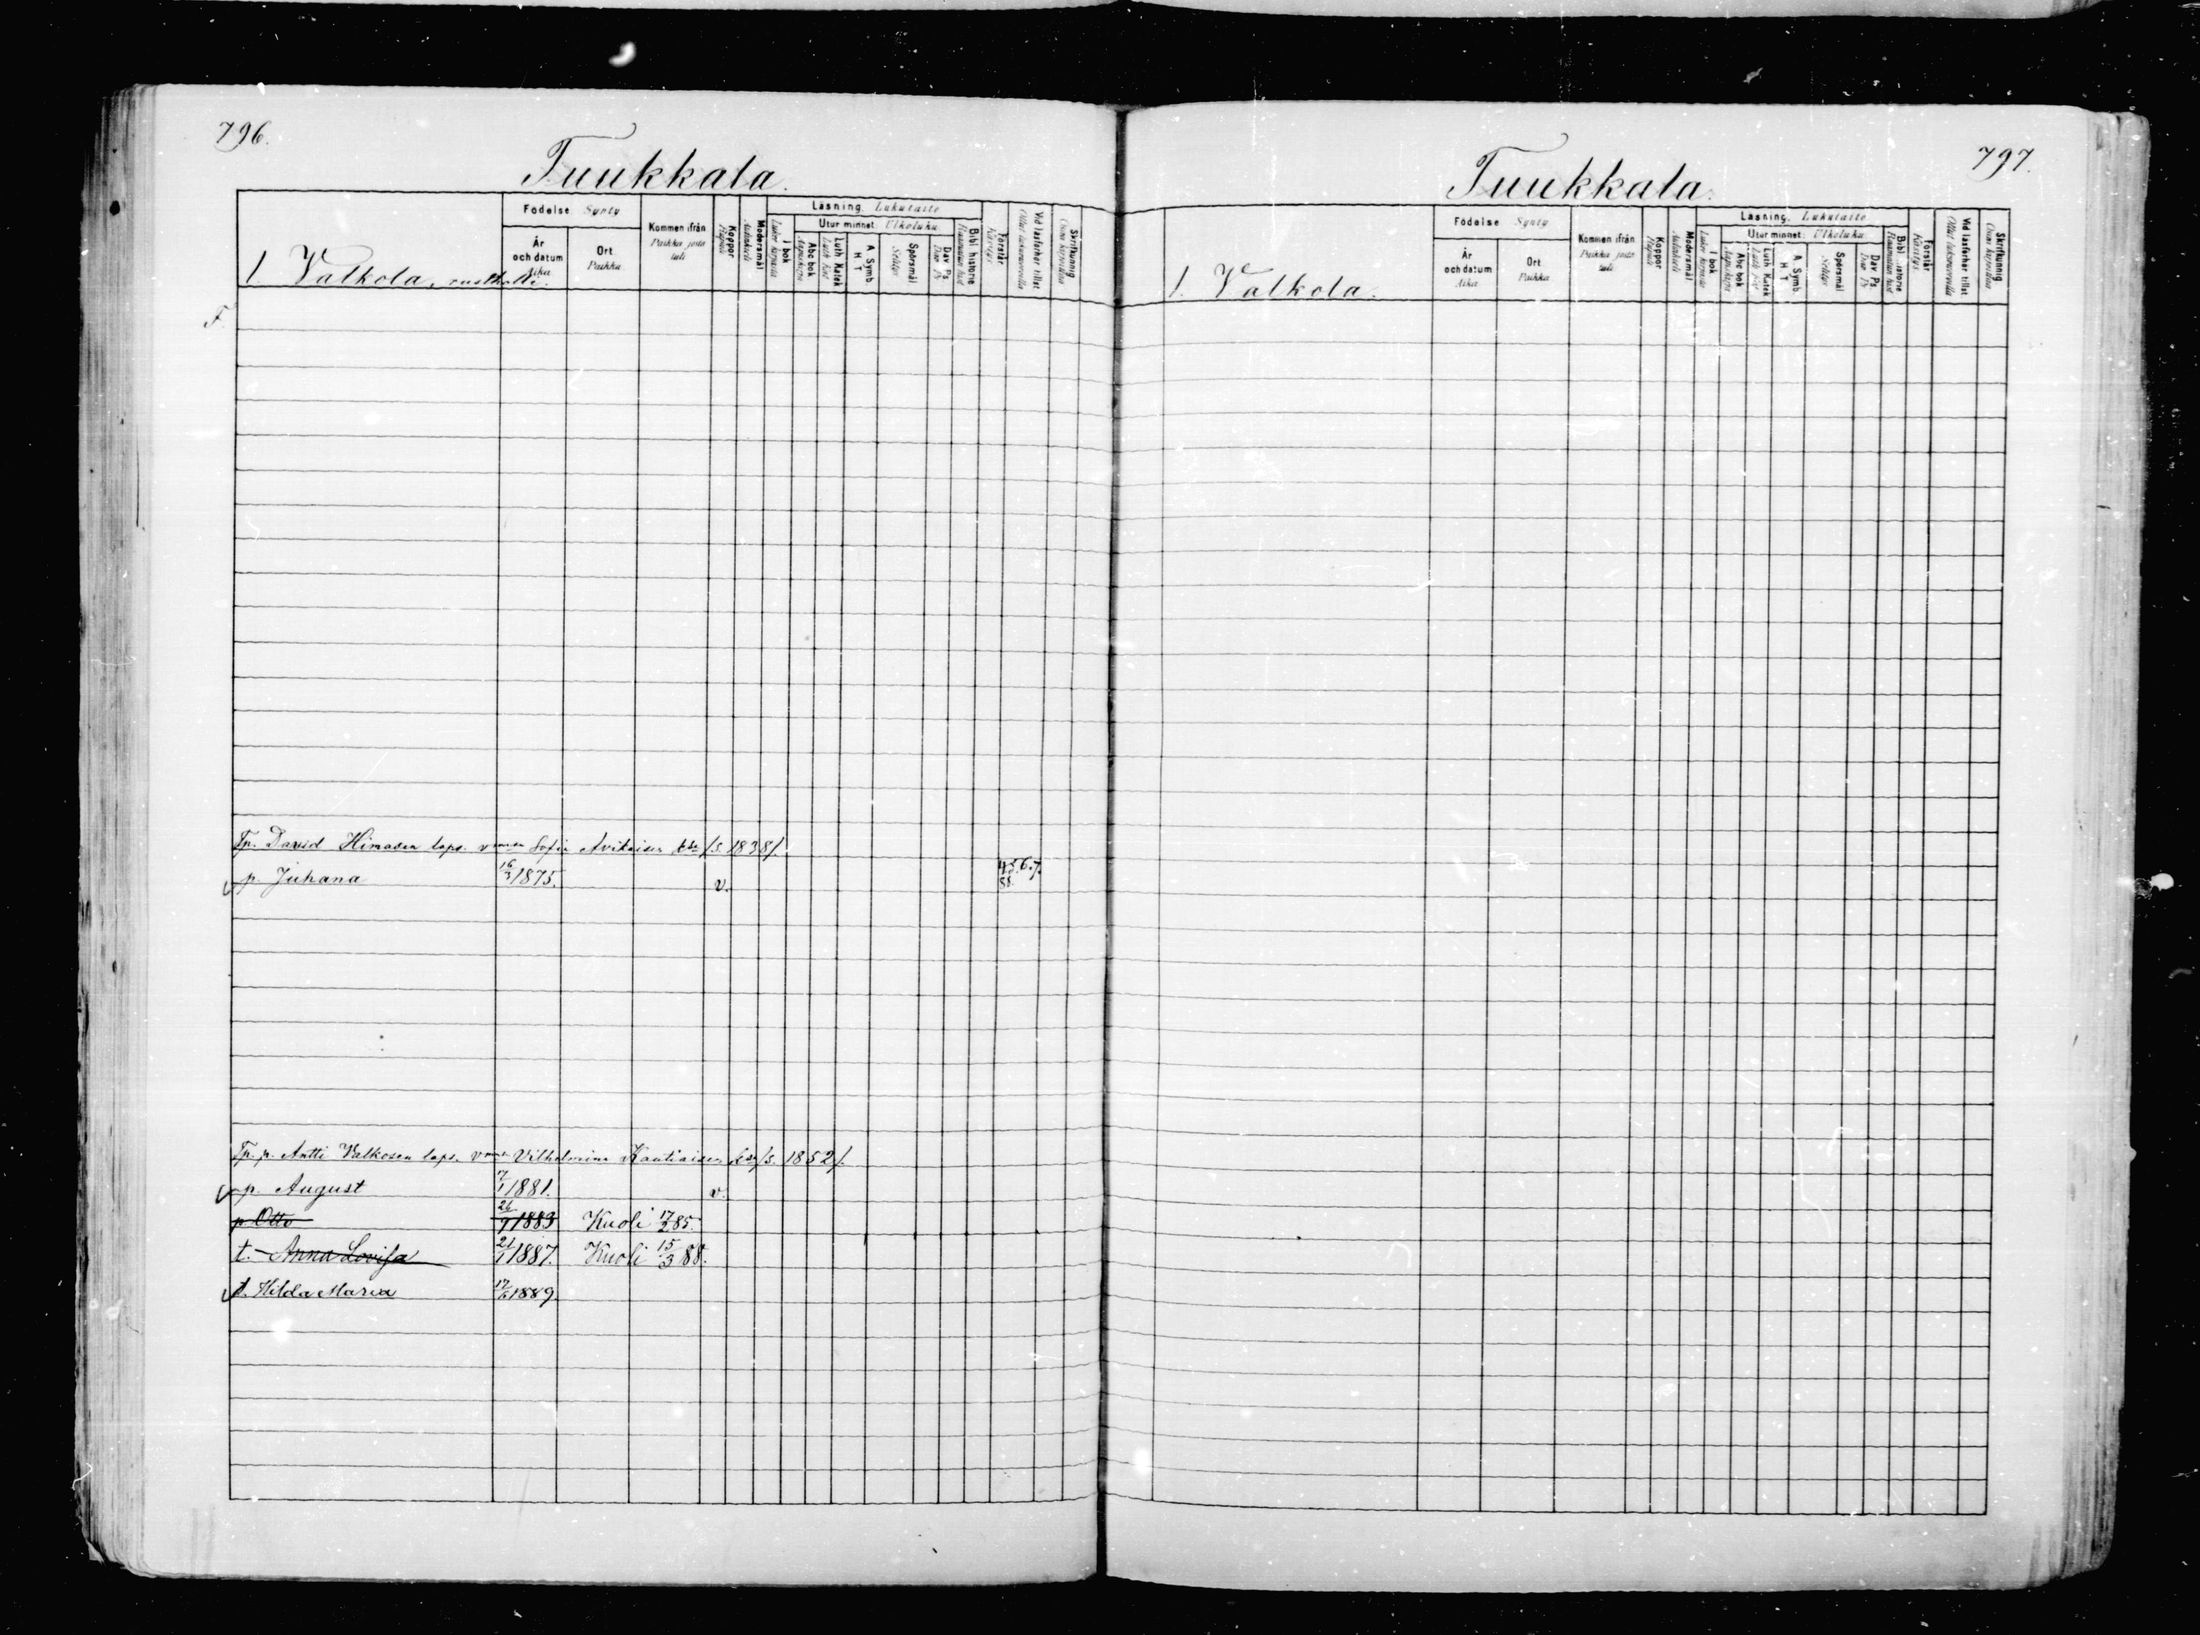 796.
Tuukkala.
1 Valkola, rustholli.
Födelse Synty
År och datum Aika
Ort Paikka
Kommen ifrån Paikka josta tuli
Koppor Rupuli
Modersmål Äidinkieli
Läsning. Lukutaito
I bok Lukee kirjasta
Utur minnet: Ulkoluku
Abc bok Aapiskirja
Luth. Katek. Luth. Kat.
A. Symb. H. T.
Spörsmål Selitys
Dav. Ps. Dav. Ps.
Bibl. historie Raamatun hist.
Förstår Käsitys
Vid läsförhör tillst. Ollut lukukuulusteluilla
Skrifkunnig Osaa kirjoittaa
F.
Tp. David Himasen laps. v Sofia Avikaisen /s. 1838/.
p. Juhana 16/3 1875. v. 4.5.6.7. 88.
Tp. p. Antti Valkosen laps. v Vilhelmiina Kautiaisen /s. 1852/.
p. August 1881. v.
p. Otto 26/9 1883 Kuoli 17/2 85.
t. Anna Lovisa 21/1 1887. Kuoli 15/3 88.
t. Hilda Maria 1889.
797.
Tuukkala.
1. Valkola.
Födelse Synty
År och datum Aika
Ort Paikka
Kommen ifrån Paikka josta tuli
Koppor Rupuli
Modersmål Äidinkieli
Läsning. Lukutaito
I bok Lukee kirjasta
Utur minnet: Ulkoluku
Abc bok Aapiskirja
Luth. Katek.
A. Symb. H. T.
Spörsmål Selitys
Dav. Ps. Dav. Ps.
Bibl. historie Raamatun hist.
Förstår Käsitys.
Vid läsförhör tillst.
Skrifkunnig Osaa kirjoittaa